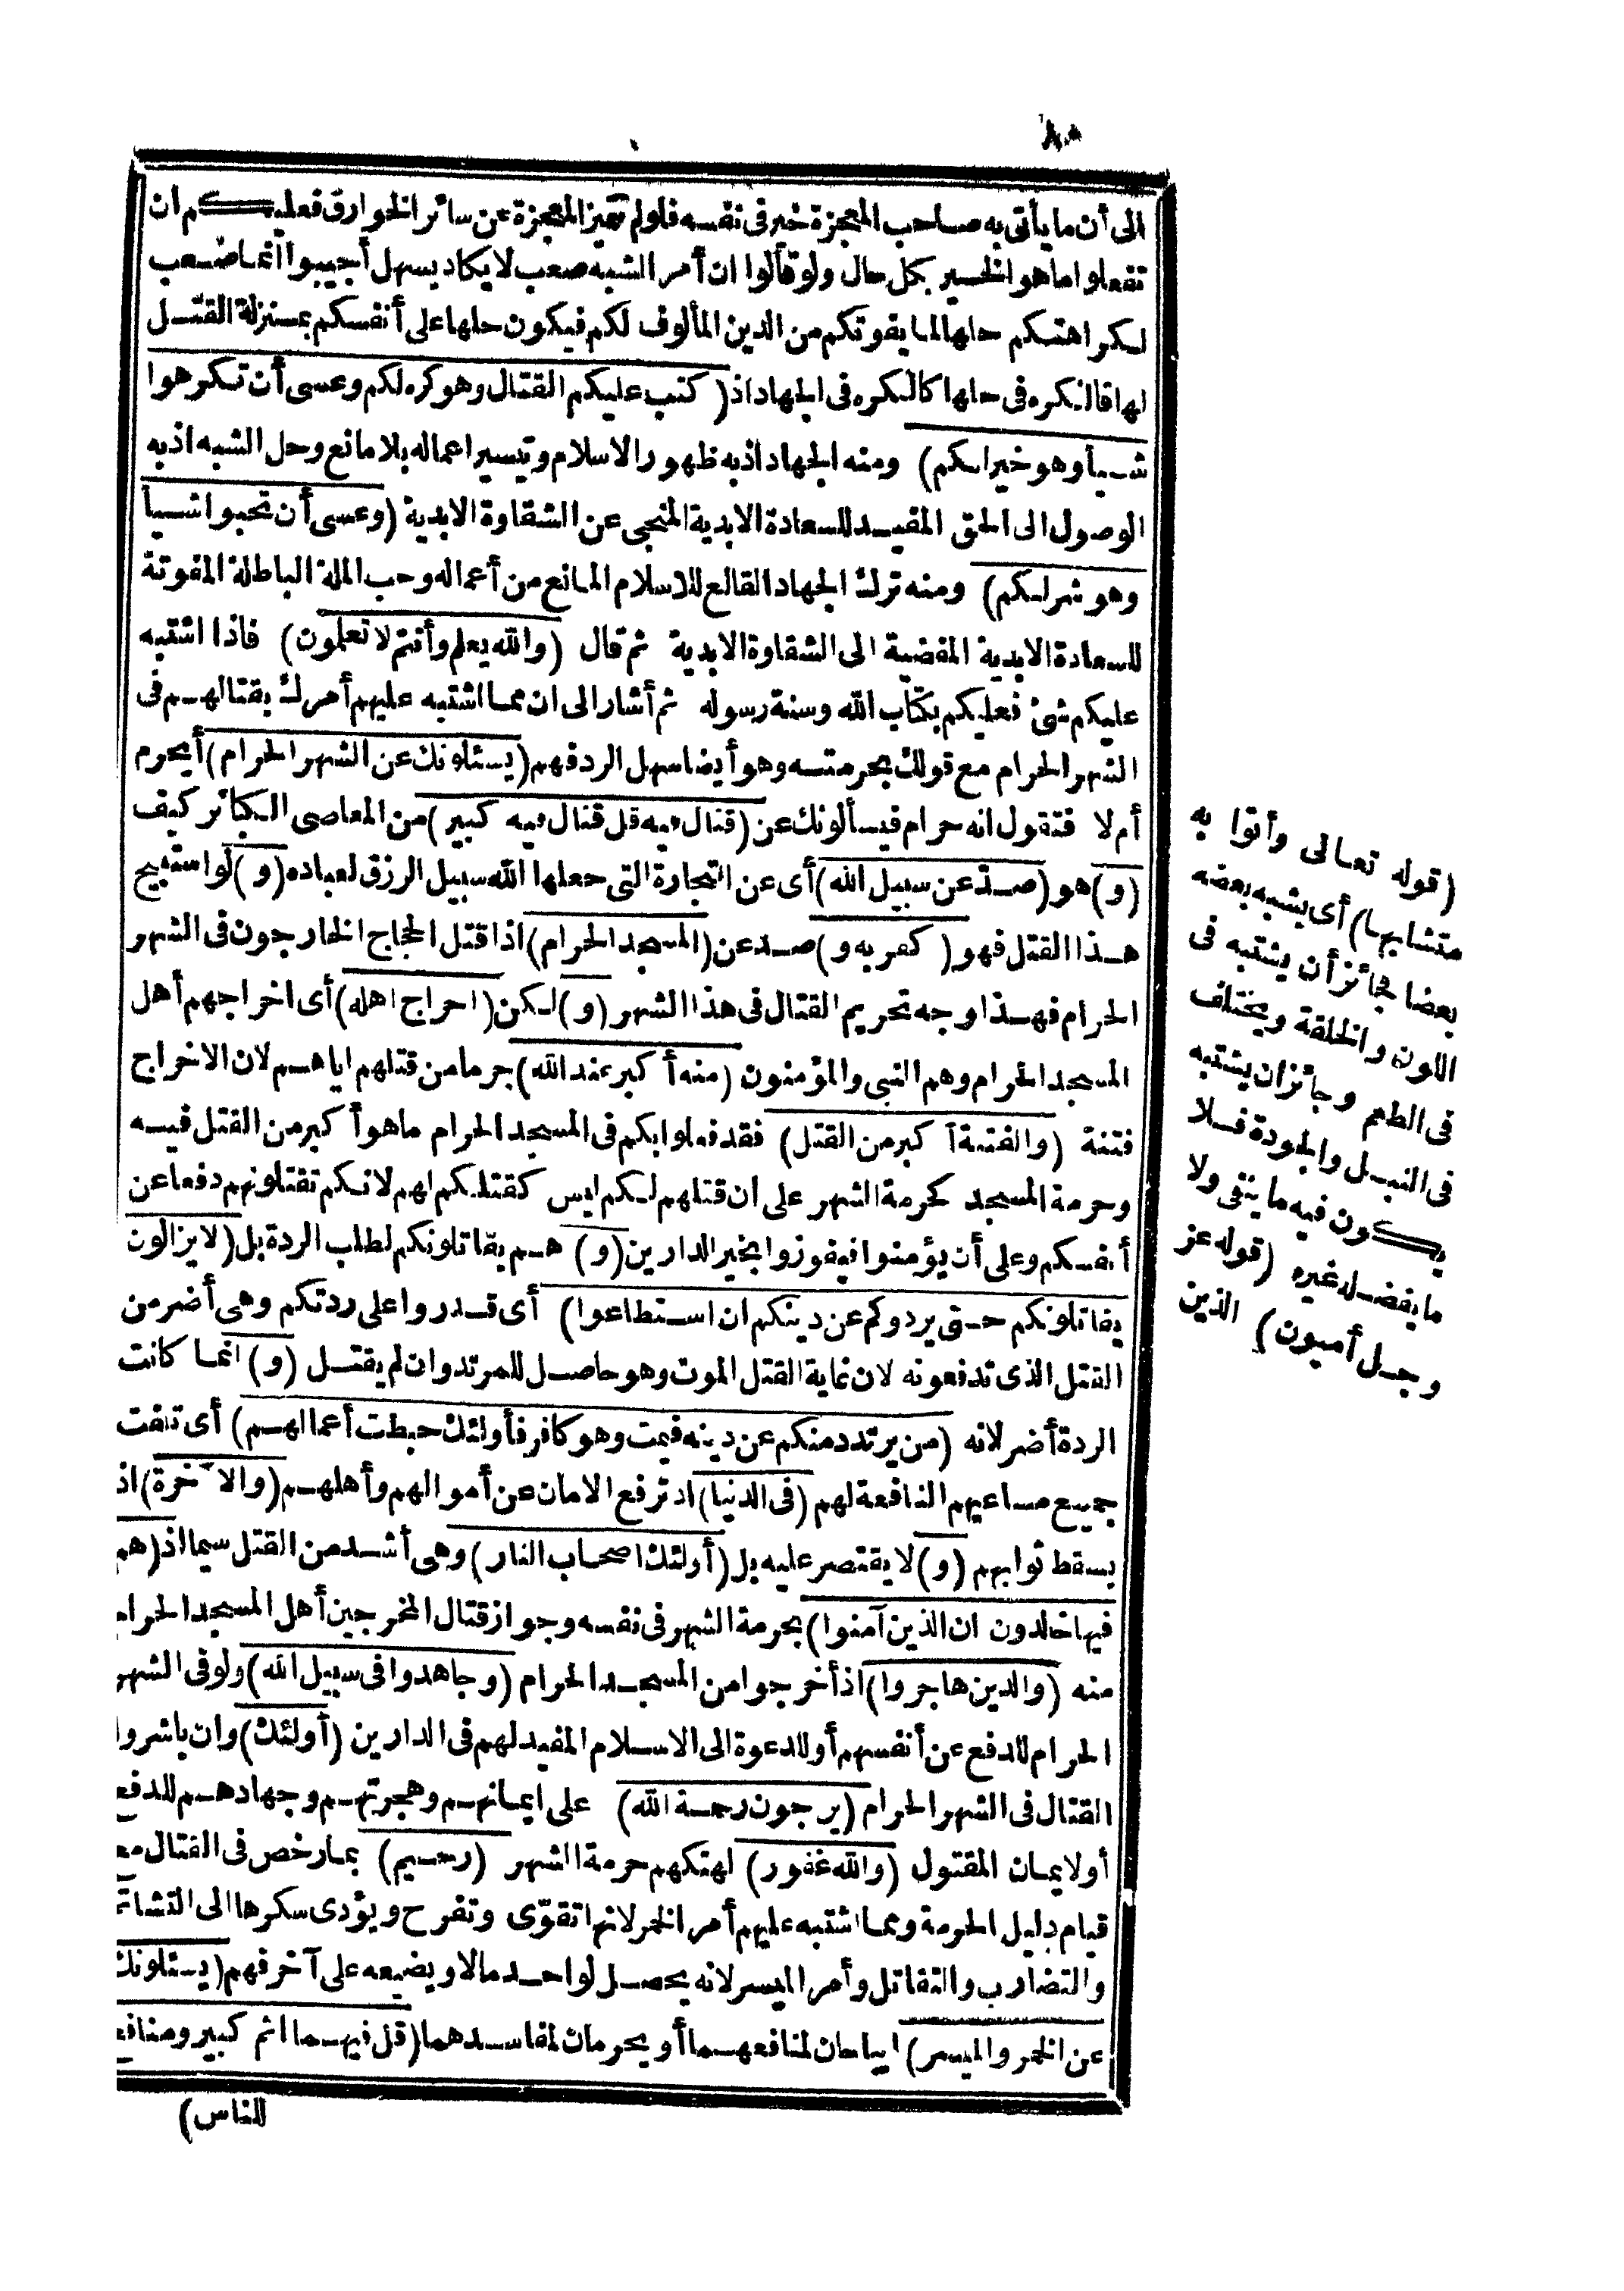 الى أن ما يأتى به صاحب المعجزة خير فى نفسه فلو لم تميز المعجزة عن سائر الخوارق فعليكم ان
تفعلوا ما هو الخير بكل حال ولو قالوا ان أمر الشبه صعب لا يكاد يسهل أجيبوا انما ضعب
لكراهتكم حلها لما يفوتكم من الدين المألوف لكم فيكون حلها على أنفسكم بمنزلة القتل
لها فالكره فى حلها كالكره فى الجهاد اذ (كتب عليكم القتال وهو كره لكم وعسى أن تكرهوا
شيأ وهو خير لكم) ومنه الجهاد اذ به ظهور الاسلام وتيسير اعماله بلا مانع وحل الشبه اذ به
الوصول الى الحق المفيد للسعادة الابدية المنجى عن الشقاوة الابدية (وعسى أن تحبوا شيأ
وهو شر لكم) ومنه ترك الجهاد القالع للاسلام المانع من أعماله وحب الملة الباطلة المفوتة
للسعادة الابدية المفضية الى الشقاوة الابدية ثم قال (والله يعلم وأنتم لا تعلمون) فاذا اشتبه
عليكم شئ فعليكم بكتاب الله وسنة رسوله ثم أشار الى ان مما اشتبه عليهم أمرك بقتالهم فى
الشهر الحرام مع قولك بحرمته وهو أيضا سهل الرد فهم (يسئلونك عن الشهر الحرام) أيحرم
أم لا فتقول انه حرام فيسألونك عن (قتال فيه قل قتال فيه كبير) من المعاصى الكبائر كيف
(و) هو (صد عن سبيل الله) أى عن التجارة التى جعلها الله سبيل الرزق لعباده (و) لو استبيح
هذا القتل فهو (كفر به و) صد عن (المسجد الحرام) اذا قتل الحجاج الخارجون فى الشهر
الحرام فهذا وجه تحريم القتال فى هذا الشهر (و) لكن (اخراج اهله) أى اخراجهم أهل
المسجد الحرام وهم النبى والمؤمنون (منه أكبر عند الله) جرما من قتلهم اياهم لان الاخراج
فتنة (والفتنة أكبر من القتل) فقد فعلوا بكم فى المسجد الحرام ما هو أكبر من القتل فيه
وحرمة المسجد كحرمة الشهر على ان قتلهم لكم ليس كقتلكم لهم لانكم تقتلونهم دفعا عن
أنفسكم وعلى أن يؤمنوا فيفوزوا بخير الدارين (و) هم يقاتلونكم لطلب الردة بل (لا يزالون
يقاتلونكم حتى يردوكم عن دينكم ان استطاعوا) أى قدروا على ردتكم وهى أضر من
القتل الذى تدفعونه لان غاية القتل الموت وهو حاصل للمرتد وان لم يقتل (و) انما كانت
الردة أضر لانه (من يرتدد منكم عن دينه فيمت وهو كافر فأولئك حبطت أعمالهم) أى تلفت
جميع مساعيهم النافعة لهم (فى الدنيا) اذ ترفع الامان عن أموالهم وأهلهم (والآخرة) اذ
يسقط ثوابهم (و) لا يقتصر عليه بل (أولئك اصحاب النار) وهى أشد من القتل سيما اذ (هم
فيها خالدون ان الذين آمنوا) بحرمة الشهر فى نفسه وجواز قتال المخرجين أهل المسجد الحرام
منه (والذين هاجروا) اذ أخرجوا من المسجد الحرام (وجاهدوا فى سبيل الله) ولو فى الشهر
الحرام للدفع عن أنفسهم أو للدعوة الى الاسلام المفيد لهم فى الدارين (أولئك) وان باشروا
القتال فى الشهر الحرام (يرجون رحمة الله) على ايمانهم وهجرتهم وجهادهم للدفع
أو لايمان المقتول (والله غفور) لهتكهم حرمة الشهر (رحيم) بما رخص فى القتال مع
قيام دليل الحرمة ومما اشتبه عليهم أمر الخمر لانها تقوى وتفرح ويؤدى سكرها الى التشاتم
والتضارب والتقاتل وأمر الميسر لانه يحصل لواحد مالا ويضيعه على آخر فهم (يسئلونك
عن الخمر والميسر) ايباحان لمنافعهما أو يحرمان لمفاسدهما (قل فيهما اثم كبير ومنافع
للناس)
(قوله تعالى وأتوا به
متشابها) أى يشبه بعضه
بعضا فجائز أن يشتبه فى
اللون والخلقة ويختلف
فى الطعم وجائز ان يشتبه
فى النبل والجودة فلا
يكون فيه ما ينفى ولا
ما يفضله غيره (قوله عز
وجل أميون) الذين